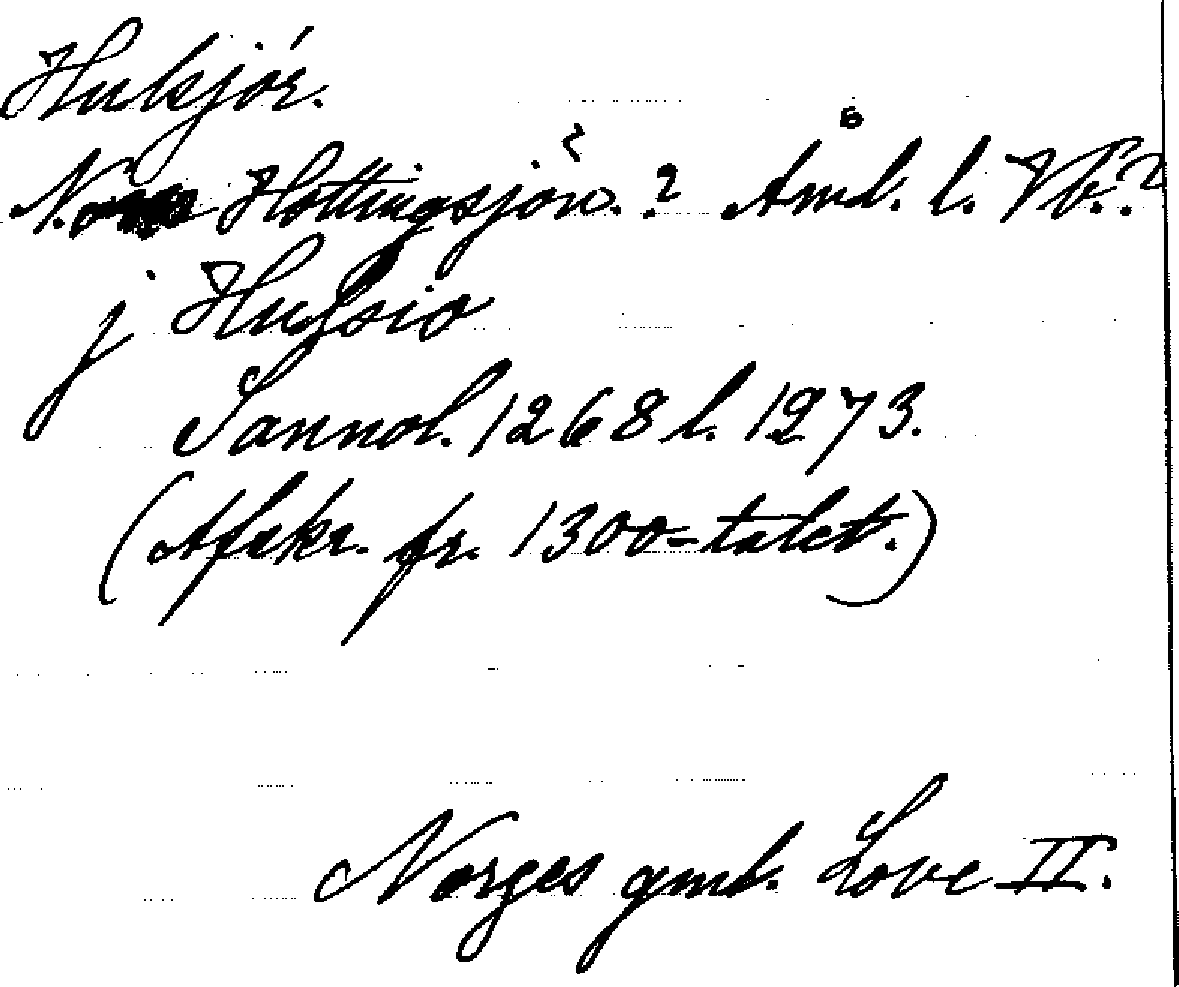 Huksjór.
N. Hottingsjön.? Åmd. l. Vb.?
j Hufsio
Sannol. 1268 l. 1273.
(Afskr. fr. 1300-talet.)
Norges gml. Love II.